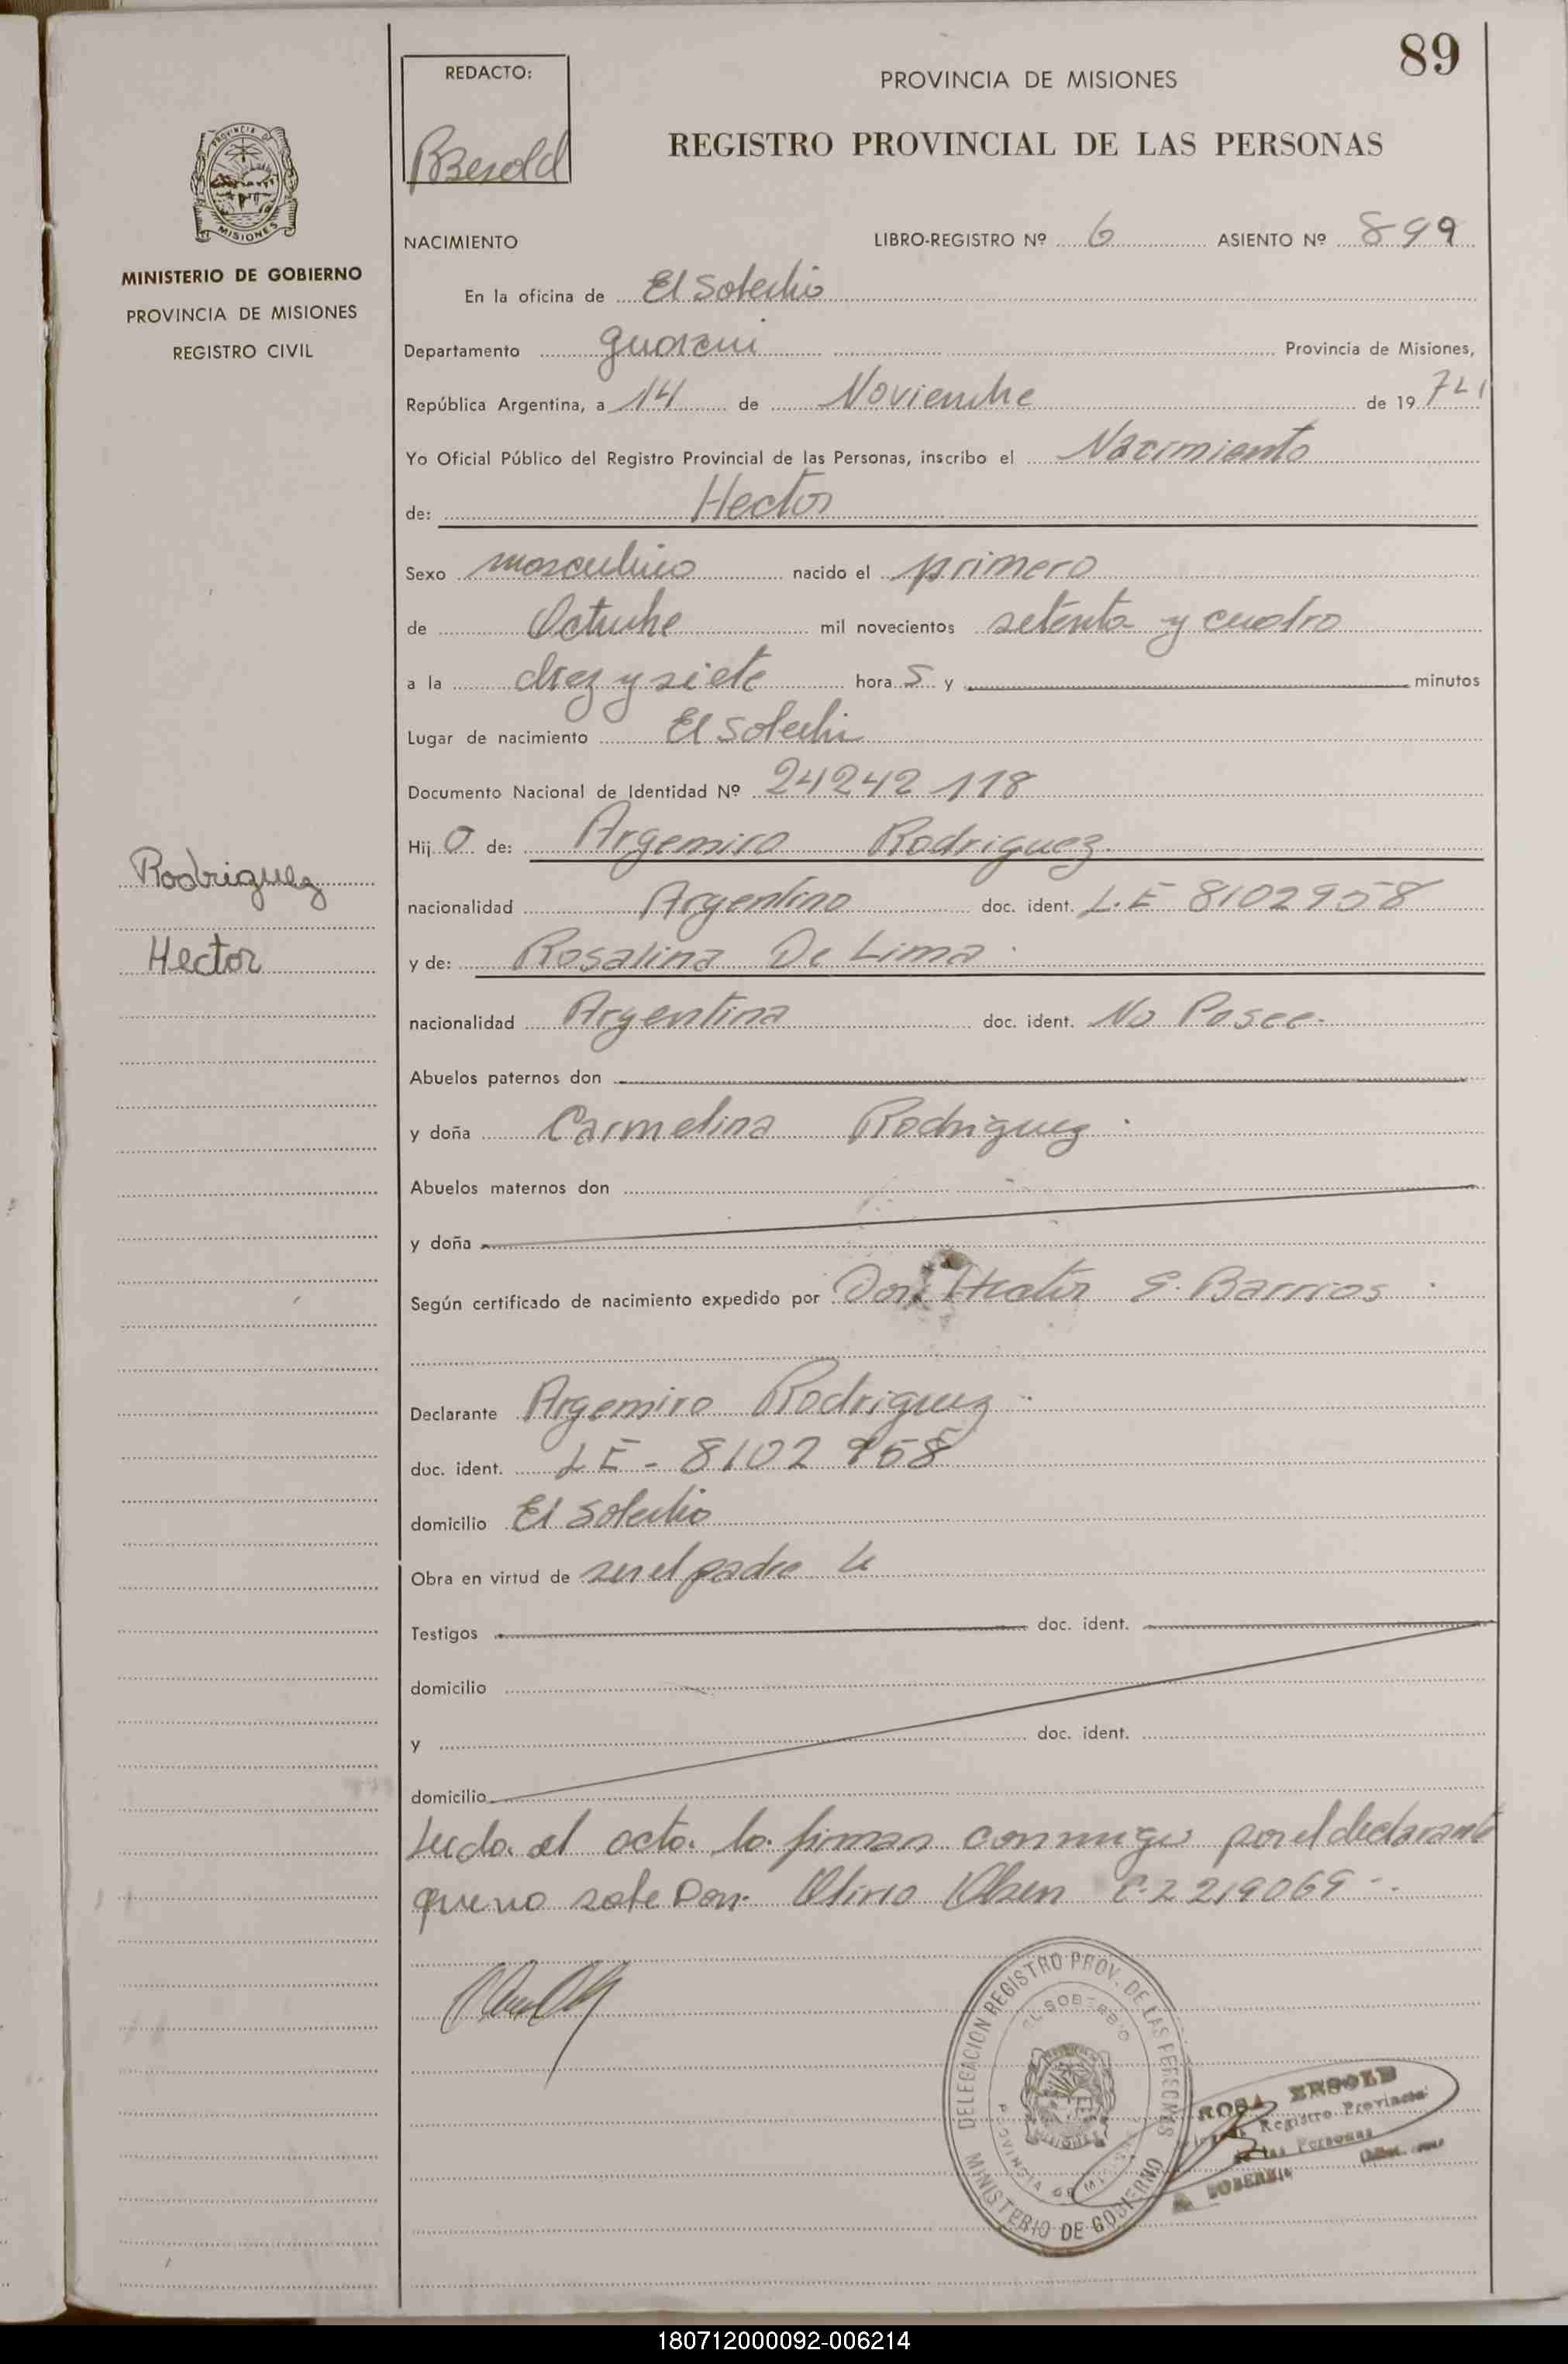 89
REDACTO:
PROVINCIA DE MISIONES
REGISTRO PROVINCIAL DE LAS PERSONAS
PROVINCIA DE
MISIONES
MINISTERIO DE GOBIERNO
PROVINCIA DE MISIONES
REGISTRO CIVIL
NACIMIENTO LIBRO-REGISTRO Nº 6 ASIENTO Nº 899
En la oficina de El Soberbio
Departamento Guarani Provincia de Misiones,
República Argentina, a 14 de Noviembre de 19 74
Yo Oficial Público del Registro Provincial de las Personas, inscribo el Nacimiento
de: Hector
Sexo masculino nacido el primero
de Octubre mil novecientos setenta y cuatro
a la diez y siete hora s y minutos
Lugar de nacimiento El Soberbio
Documento Nacional de Identidad Nº 24242118
Hij o de: Argemiro Rodriguez.
Rodriguez
Hector
nacionalidad Argentino doc. ident. L.E 8102958
y de: Rosalina De Lima
nacionalidad Argentina doc. ident. No Posee.
Abuelos paternos don
y doña Carmelina Rodriguez
Abuelos maternos don
y doña
Según certificado de nacimiento expedido por Don Hector E. Barrios
Declarante Argemiro Rodriguez
doc. ident. LE - 8102958
domicilio El Soberbio
Obra en virtud de ser el padre
Testigos doc. ident.
domicilio
y doc. ident.
domicilio
Leida el acta la firman conmigo por el declarante
que no sabe Don Olirio Olsen
DELEGACION REGISTRO PROV. DE LAS PERSONAS
EL SOBERBIO
PROVINCIA DE MISIONES
MISIONES
MINISTERIO DE GOBIERNO
ROSA BESOLD
Registro Provincial
de las Personas
SOBERBIO
180712000092-006214